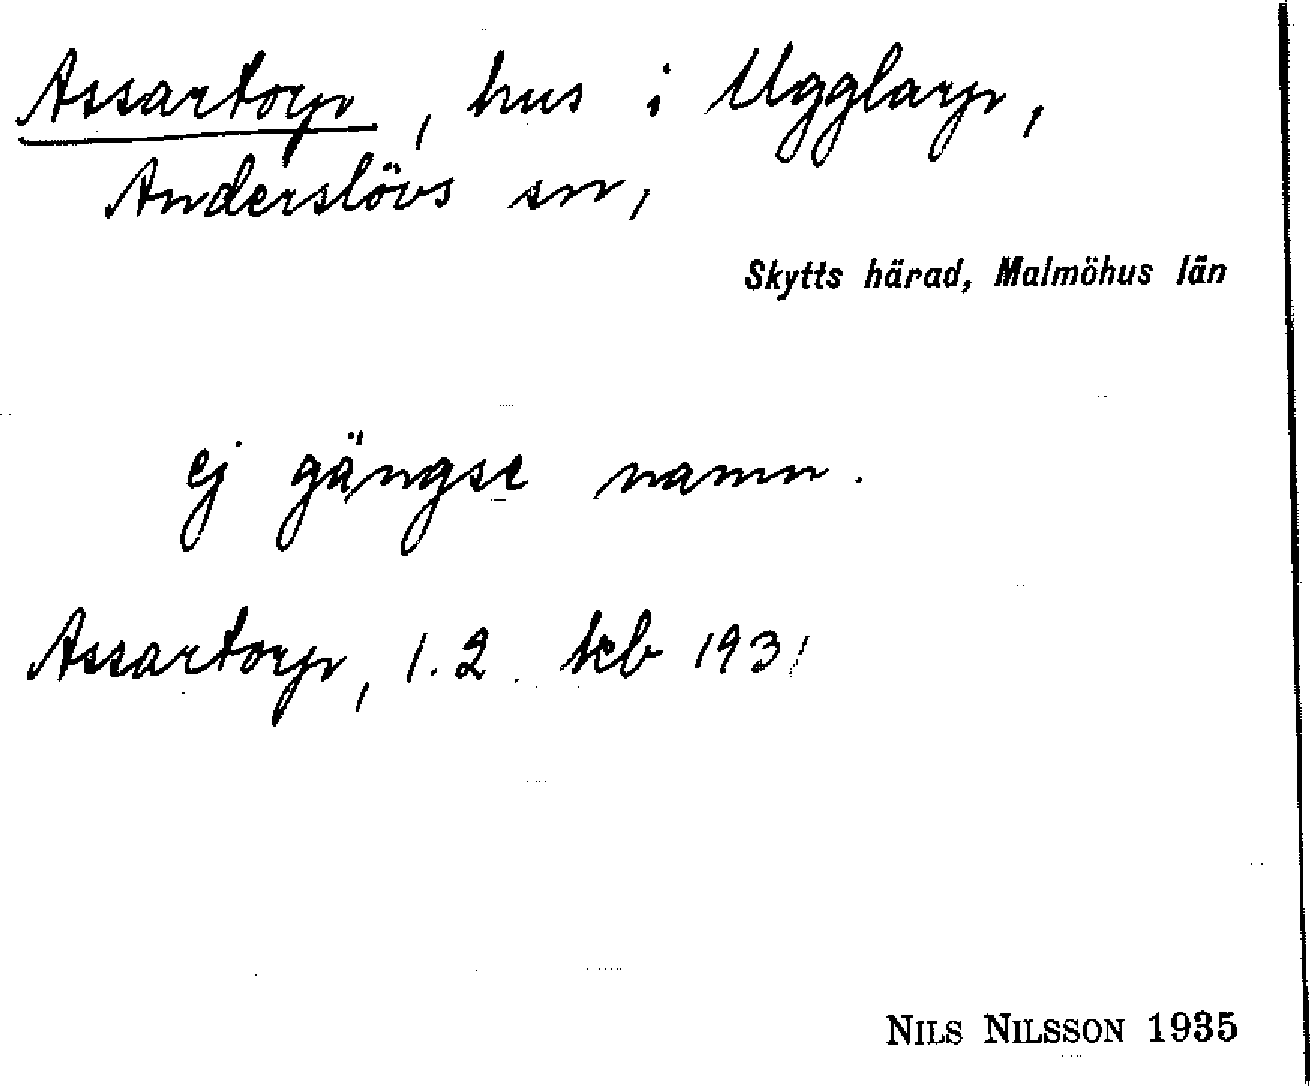 Assartorp, hus i Ugglarp,
Anderslövs sn,
Skytts härad, Malmöhus län
ej gängse namn.
Assartorp, 1.2. tkb 1931
NILS NILSSON 1935